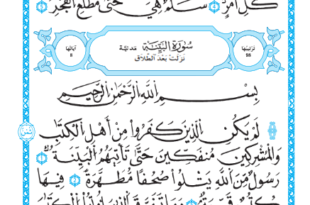 كُلِّ أَمْرٍ سَلَٰمٌ هِيَ حَتَّىٰ مَطْلَعِ ٱلْفَجْرِ
ترتيبها ٩٨ سُورَةُ البَيِّنَة مدنيّة آياتها ٨
نزلت بعد الطلاق
بِسْمِ ٱللَّهِ ٱلرَّحْمَٰنِ ٱلرَّحِيمِ
لَمْ يَكُنِ ٱلَّذِينَ كَفَرُوا۟ مِنْ أَهْلِ ٱلْكِتَٰبِ
وَٱلْمُشْرِكِينَ مُنفَكِّينَ حَتَّىٰ تَأْتِيَهُمُ ٱلْبَيِّنَةُ
رَسُولٌ مِّنَ ٱللَّهِ يَتْلُوا۟ صُحُفًا مُّطَهَّرَةً فِيهَا